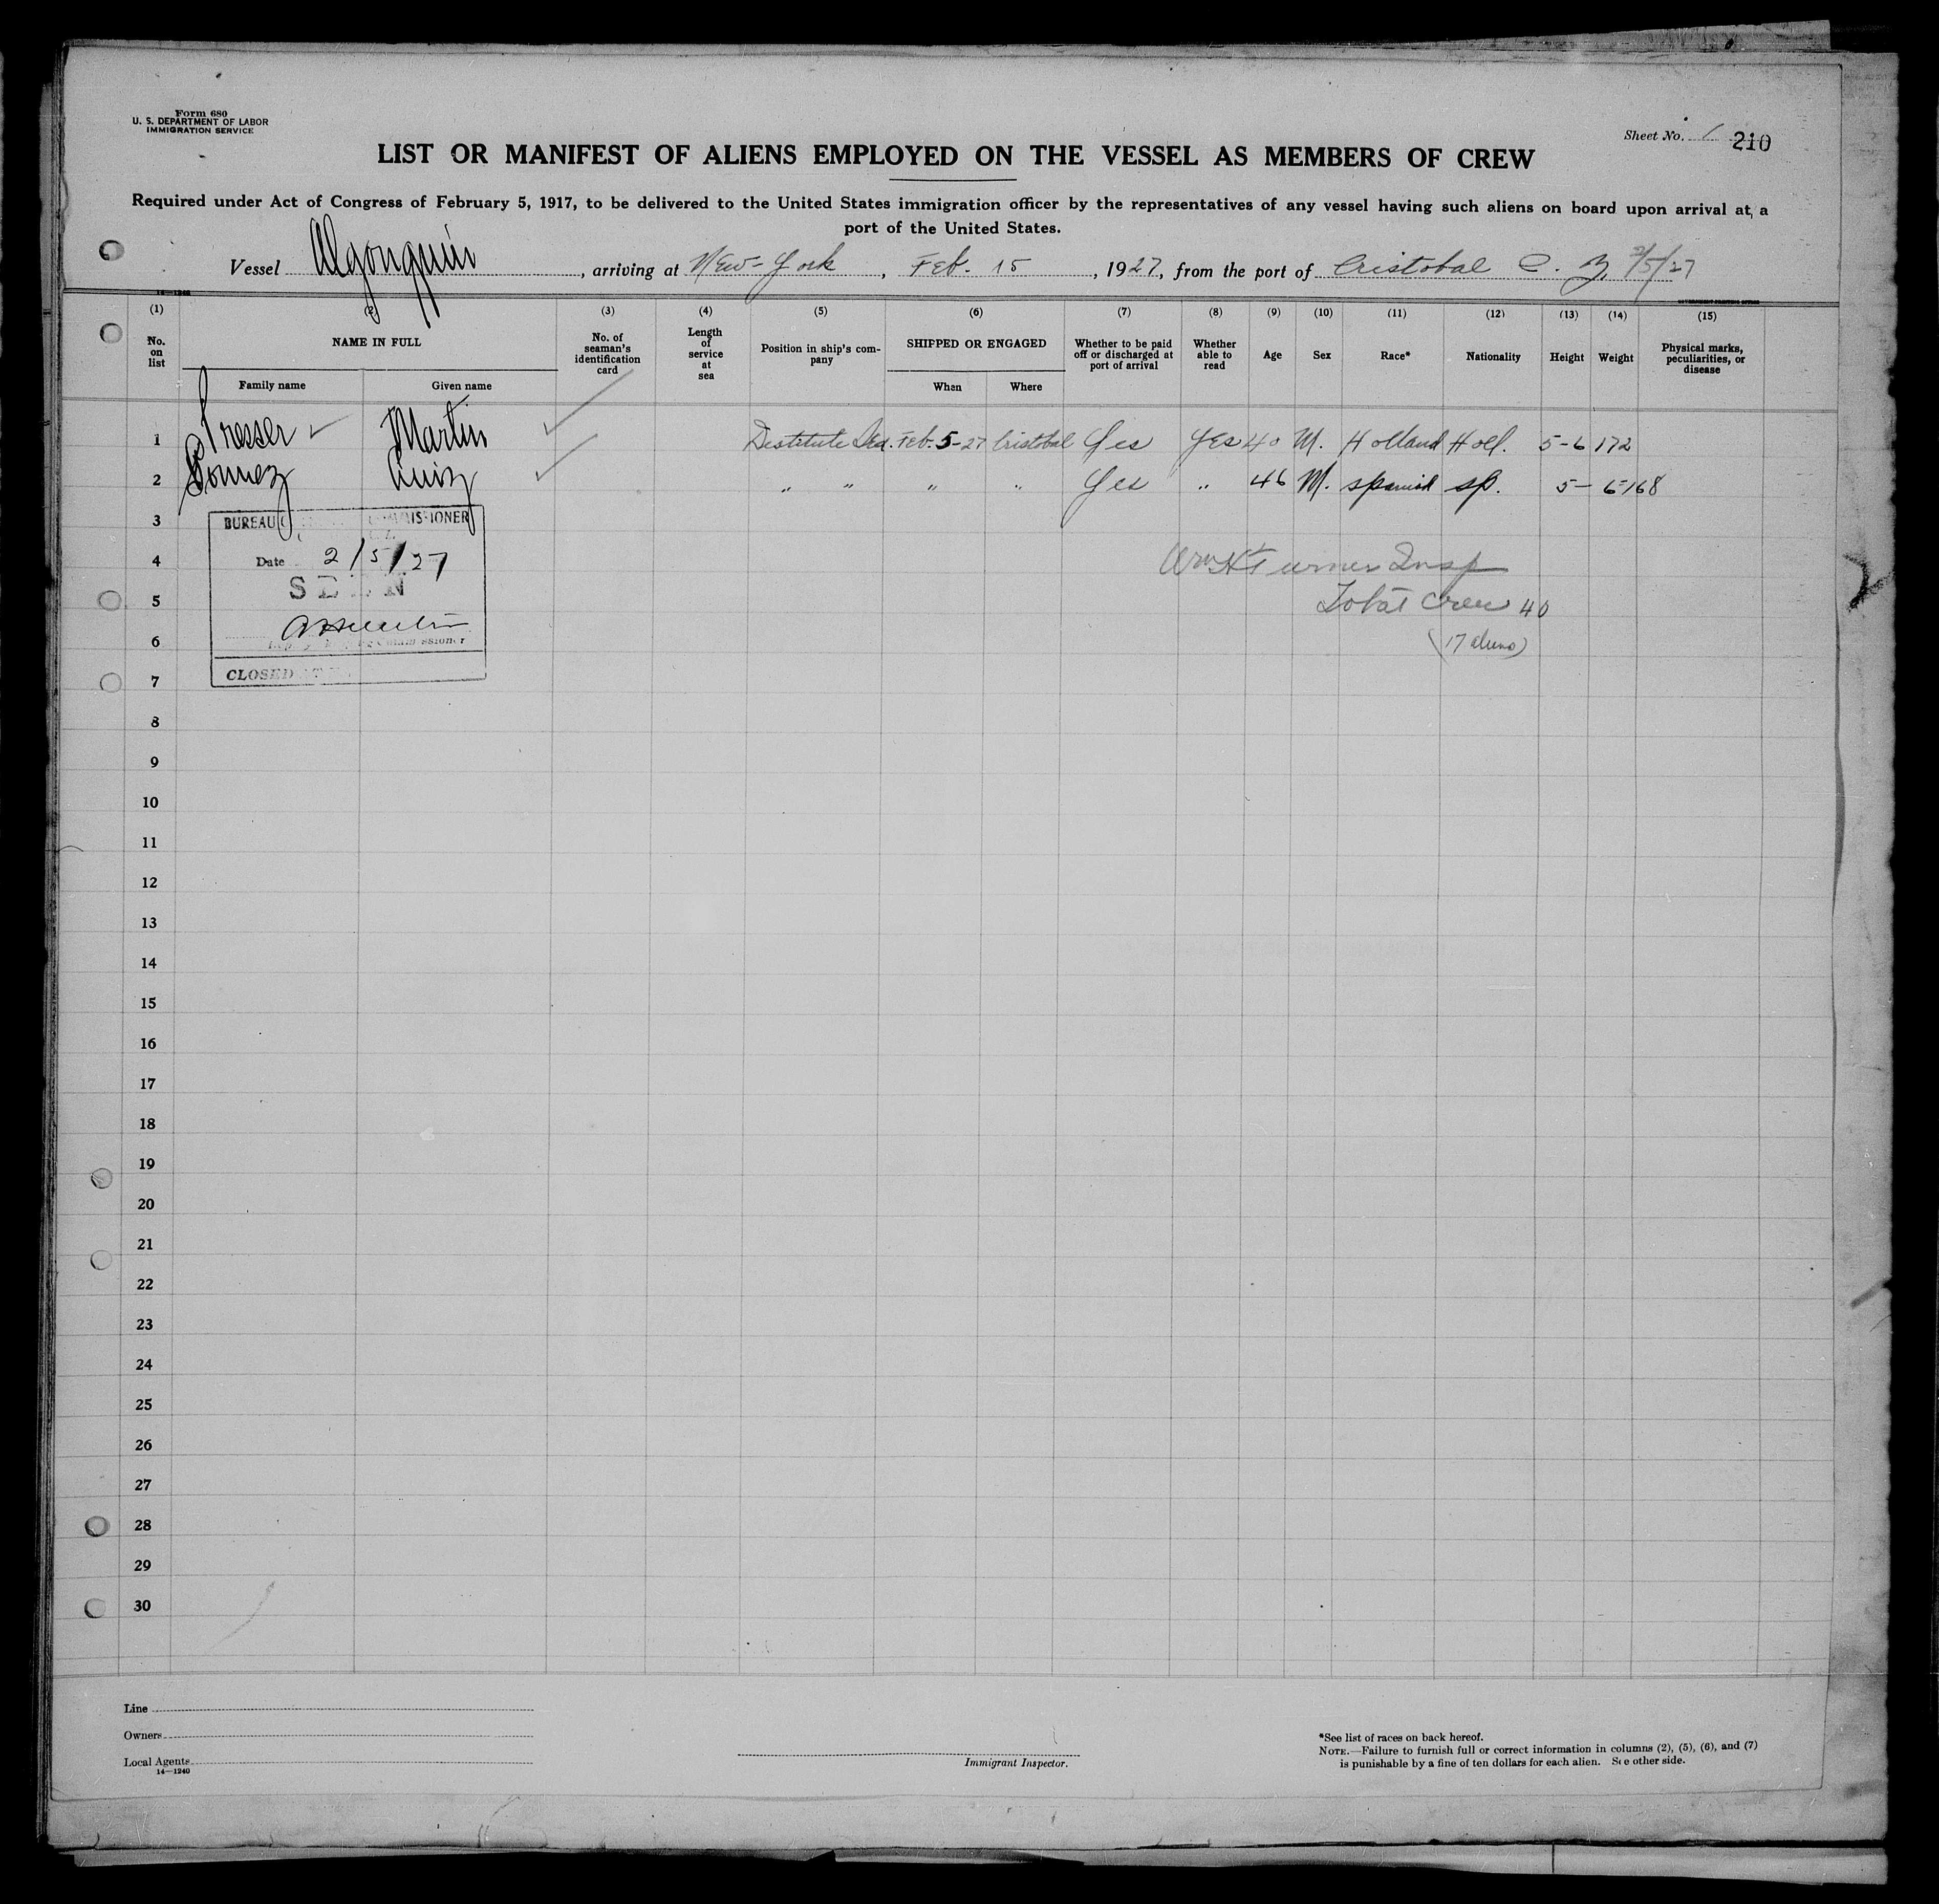 Form 680
U. S. DEPARTMENT OF LABOR
IMMIGRATION SERVICE
Sheet No. 1 210
LIST OR MANIFEST OF ALIENS EMPLOYED ON THE VESSEL AS MEMBERS OF CREW
Required under Act of Congress of February 5, 1917, to be delivered to the United States immigration officer by the representatives of any vessel having such aliens on board upon arrival at a
port of the United States.
Vessel Algonquin, arriving at New-York, Feb. 15, 1927, from the port of Cristobal C. Z. 2/5/27
14—1240
GOVERNMENT PRINTING OFFICE
(1) (2) (3) (4) (5) (6) (7) (8) (9) (10) (11) (12) (13) (14) (15)
No. on list NAME IN FULL No. of seaman's identification card Length of service at sea Position in ship's company SHIPPED OR ENGAGED Whether to be paid off or discharged at port of arrival Whether able to read Age Sex Race* Nationality Height Weight Physical marks, peculiarities, or disease
Family name Given name When Where
1 Martin Destitute Feb. 5-27 Cristobal Yes Yes 40 M. Holland Holl. 5-6 172
2 " " " " Yes " 46 M. Spanish Sp. 5-6 168
3
BUREAU COMMISSIONER
4
Date 2/5/27
SEEN
5
6
CLOSED
7
Wm H Turner Insp
Total Crew 40
(17 aliens)
8
9
10
11
12
13
14
15
16
17
18
19
20
21
22
23
24
25
26
27
28
29
30
Line
Owners
Local Agents
14—1240
Immigrant Inspector.
*See list of races on back hereof.
NOTE.—Failure to furnish full or correct information in columns (2), (5), (6), and (7)
is punishable by a fine of ten dollars for each alien. See other side.